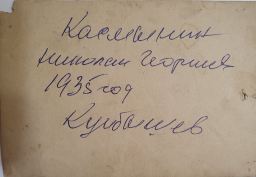 Касмынин
Николай Георгиев
1935 год
Куйбышев